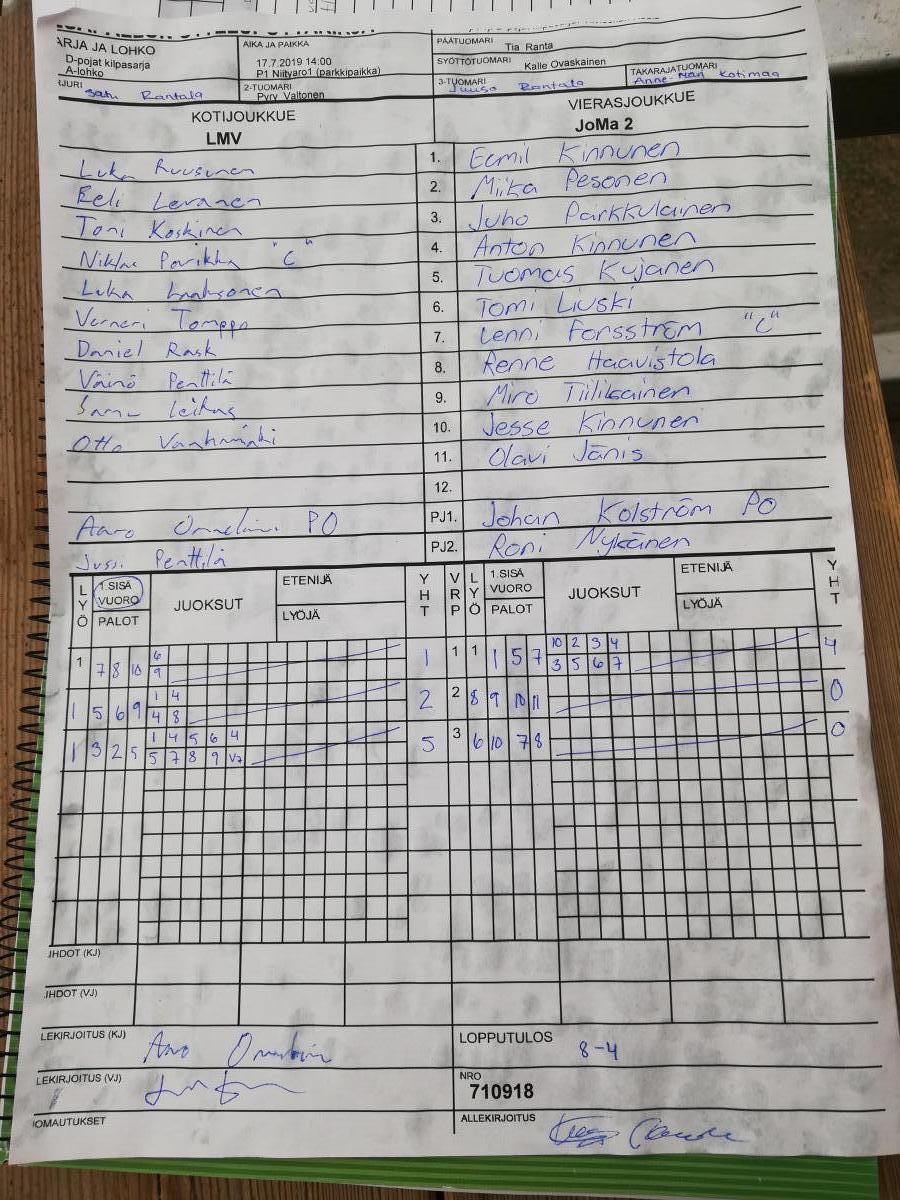 ARJA JA LOHKO
D-pojat kilpasarja
A-lohko
AIKA JA PAIKKA
17.7.2019 14:00
P1 Niityaro1 (parkkipaikka)
PÄÄTUOMARI Tia Ranta
SYÖTTÖTUOMARI Kalle Ovaskainen
Satu Rantala
2-TUOMARI
Pyry Valtonen
3-TUOMARI
Juuso Rantala
TAKARAJATUOMARI
Anne-Mari Kotimaa
KOTIJOUKKUE
LMV
VIERASJOUKKUE
JoMa 2
Luka Ruusunen 1. Eemil Kinnunen
Eeli Levanen 2. Miika Pesonen
Toni Koskinen 3. Juho Parkkulainen
Niklas Parikka "C" 4. Anton Kinnunen
Luka Laaksonen 5. Tuomas Kujanen
Verneri Tomppo 6. Tomi Liuski
Daniel Rask 7. Lenni Forsström "C"
Väinö Penttilä 8. Renne Haavistola
Samu Leikas 9. Miro Tiilikainen
Otto 10. Jesse Kinnunen
11. Olavi Jänis
12.
Aaro PO PJ1. Johan Kolström PO
Jussi Penttilä PJ2. Roni Nykänen
LYÖ 1.SISÄ VUORO PALOT JUOKSUT ETENIJÄ LYÖJÄ YHT VRP LYÖ 1.SISÄ VUORO PALOT JUOKSUT ETENIJÄ LYÖJÄ YHT
1 7 8 10 6 1 1 1 1 5 7 10 2 3 4 4
9 3 5 6 7
1 5 6 9 1 4 2 2 8 9 10 11 0
4 8
1 3 2 5 1 4 5 6 4 5 3 6 10 7 8 0
5 7 8 9 V7
JHDOT (KJ)
JHDOT (VJ)
LEKIRJOITUS (KJ) Aaro
LOPPUTULOS
8-4
LEKIRJOITUS (VJ)
NRO
710918
OMAUTUKSET
ALLEKIRJOITUS